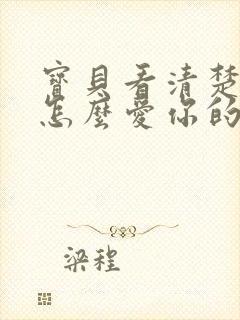 寶貝看清楚
怎麼愛你的
梁程